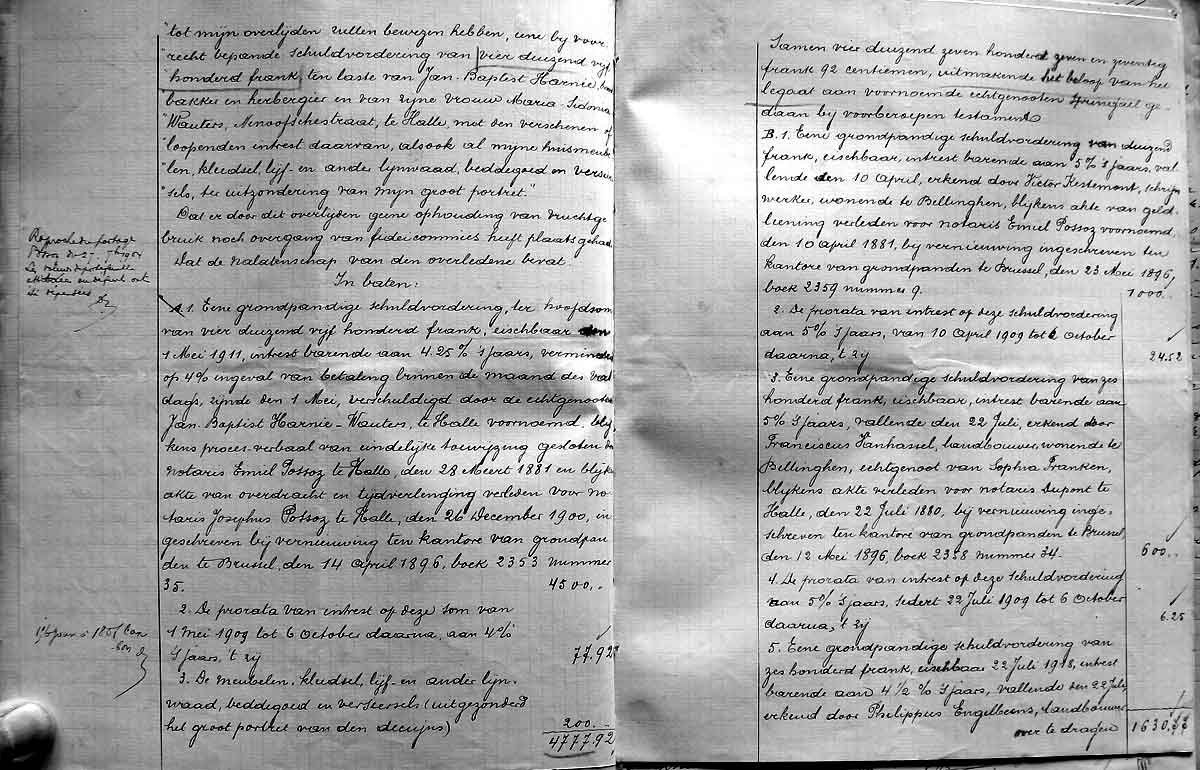 "tot mijn overlijden zullen bewezen hebben, eene bij voor
"recht bepande schuldvordering van vier duizend vijf
"honderd frank, ten laste van Jan-Baptist Harnie,
bakker en herbergier en van zijne vrouw Maria-Sidonia
"Wauters, Ninoofschestraat, te Halle, met den verschenen of
"loopenden intrest daarvan, alsook al mijne huismeube
"len, kleedsel, lijf- en ander lijnwaad, beddegoed en versier
"sels, ter uitzondering van mijn groot portret."
Dat er door dit overlijden geene ophouding van vruchtge
bruik noch overgang van fideicommies heeft plaats gehad
Dat de nalatenschap van den overledene bevat.
In baten:
A.1. Eene grondpandige schuldvordering, ter hoofdsom
van vier duizend vijf honderd frank, eischbaar den
1 Mei 1911, intrest barende aan 4.25% 's jaars, verminderd
op 4% ingeval van betaling binnen de maand des val
dags, zijnde den 1 Mei, verschuldigd door de echtgenooten
Jan-Baptist Harnie-Wauters, te Halle voornoemd, blij
kens proces-verbaal van eindelijke toewijzing gesloten
notaris Emiel Possoz te Halle, den 28 Meert 1881 en blijkens
akte van overdracht en tijdverlenging verleden voor no
taris Josephus Possoz te Halle, den 26 December 1900, in
geschreven bij vernieuwing ten kantore van grondpan
den te Brussel, den 14 april 1896, boek 2353 nummer
35. 4500,-
2. De prorata van intrest op deze som van
1 Mei 1909 tot 6 October daarna, aan 4%
's jaars, 't zij 77.92
3. De meubelen, kleedsel, lijf- en ander lijn-
waad, beddegoed en versiersels (uitgezonderd
het groot portret van den decujus) 200.-
4777.92
Samen vier duizend zeven honderd zeven en zeventig
frank 92 centiemen, uitmakende het beloop van het
legaat aan voornoemde echtgenooten ge-
daan bij voorberoepen testament
B.1. Eene grondpandige schuldvordering van duizend
frank, eischbaar, intrest barende aan 5% 's jaars, val
lende den 10 April, erkend door Victor Kestemont, schrijn
werker, wonende te Bellinghen, blijkens akte van geld-
leening verleden voor notaris Emiel Possoz voornoemd,
den 10 april 1881, bij vernieuwing ingeschreven ten
kantore van grondpanden te Brussel, den 23 Mei 1896,
boek 2359 nummer 9. 1000.-
2. De prorata van intrest op deze schuldvordering
aan 5% 's jaars, van 10 April 1909 tot 6 October
daarna, 't zij 24.52
3. Eene grondpandige schuldvordering van zes
honderd frank, eischbaar, intrest barende aan
5% 's jaars, vallende den 22 Juli, erkend door
Franciscus Vanhassel, landbouwer, wonende te
Bellinghen, echtgenoot van Sophia Franken,
blijkens akte verleden voor notaris Dupont te
Halle, den 22 Juli 1880, bij vernieuwing inge-
schreven ten kantore van grondpanden te Brussel,
den 12 Mei 1896, boek 2358 nummer 34. 600.-
4. De prorata van intrest op deze schuldvordering
aan 5% 's jaars, sedert 22 Juli 1909 tot 6 October
daarna, 't zij 6.25
5. Eene grondpandige schuldvordering van
zes honderd frank, eischbaar 22 Juli 1918, intrest
barende aan 4 1/2 % 's jaars, vallende den 22 Juli,
erkend door Philippus Engelbeens, landbouwer
over te dragen 1630.77